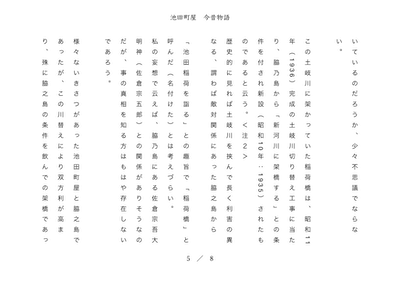 池田町屋　今昔物語
いているのだろうか、少々不思議でならな
い。
この土岐川に架かっていた稲荷橋は、昭和11
年（1936）完成の土岐川切り替え工事に当た
り、脇乃島から「新河川に架橋する」との条
件を付され新設（昭和10年：1935）されたも
のであると云う。＜注2＞
歴史的に見れば土岐川を挟んで長く利害の異
なる、謂わば敵対関係にあった脇之島から
「池田稲荷を詣る」との趣旨で「稲荷橋」と
呼んだ（名付けた）とは考えづらい。
私の妄想で云えば、脇乃島にある佐倉宗吾大
明神（佐倉宗五郎）との関係がありそうなの
だが、事の真相を知る方はもはや存在しない
であろう。
様々ないきさつがあった池田町屋と脇之島で
あったが、この川替えにより双方利が高ま
り、殊に脇之島の条件を飲んでの架橋であっ
5 ／ 8